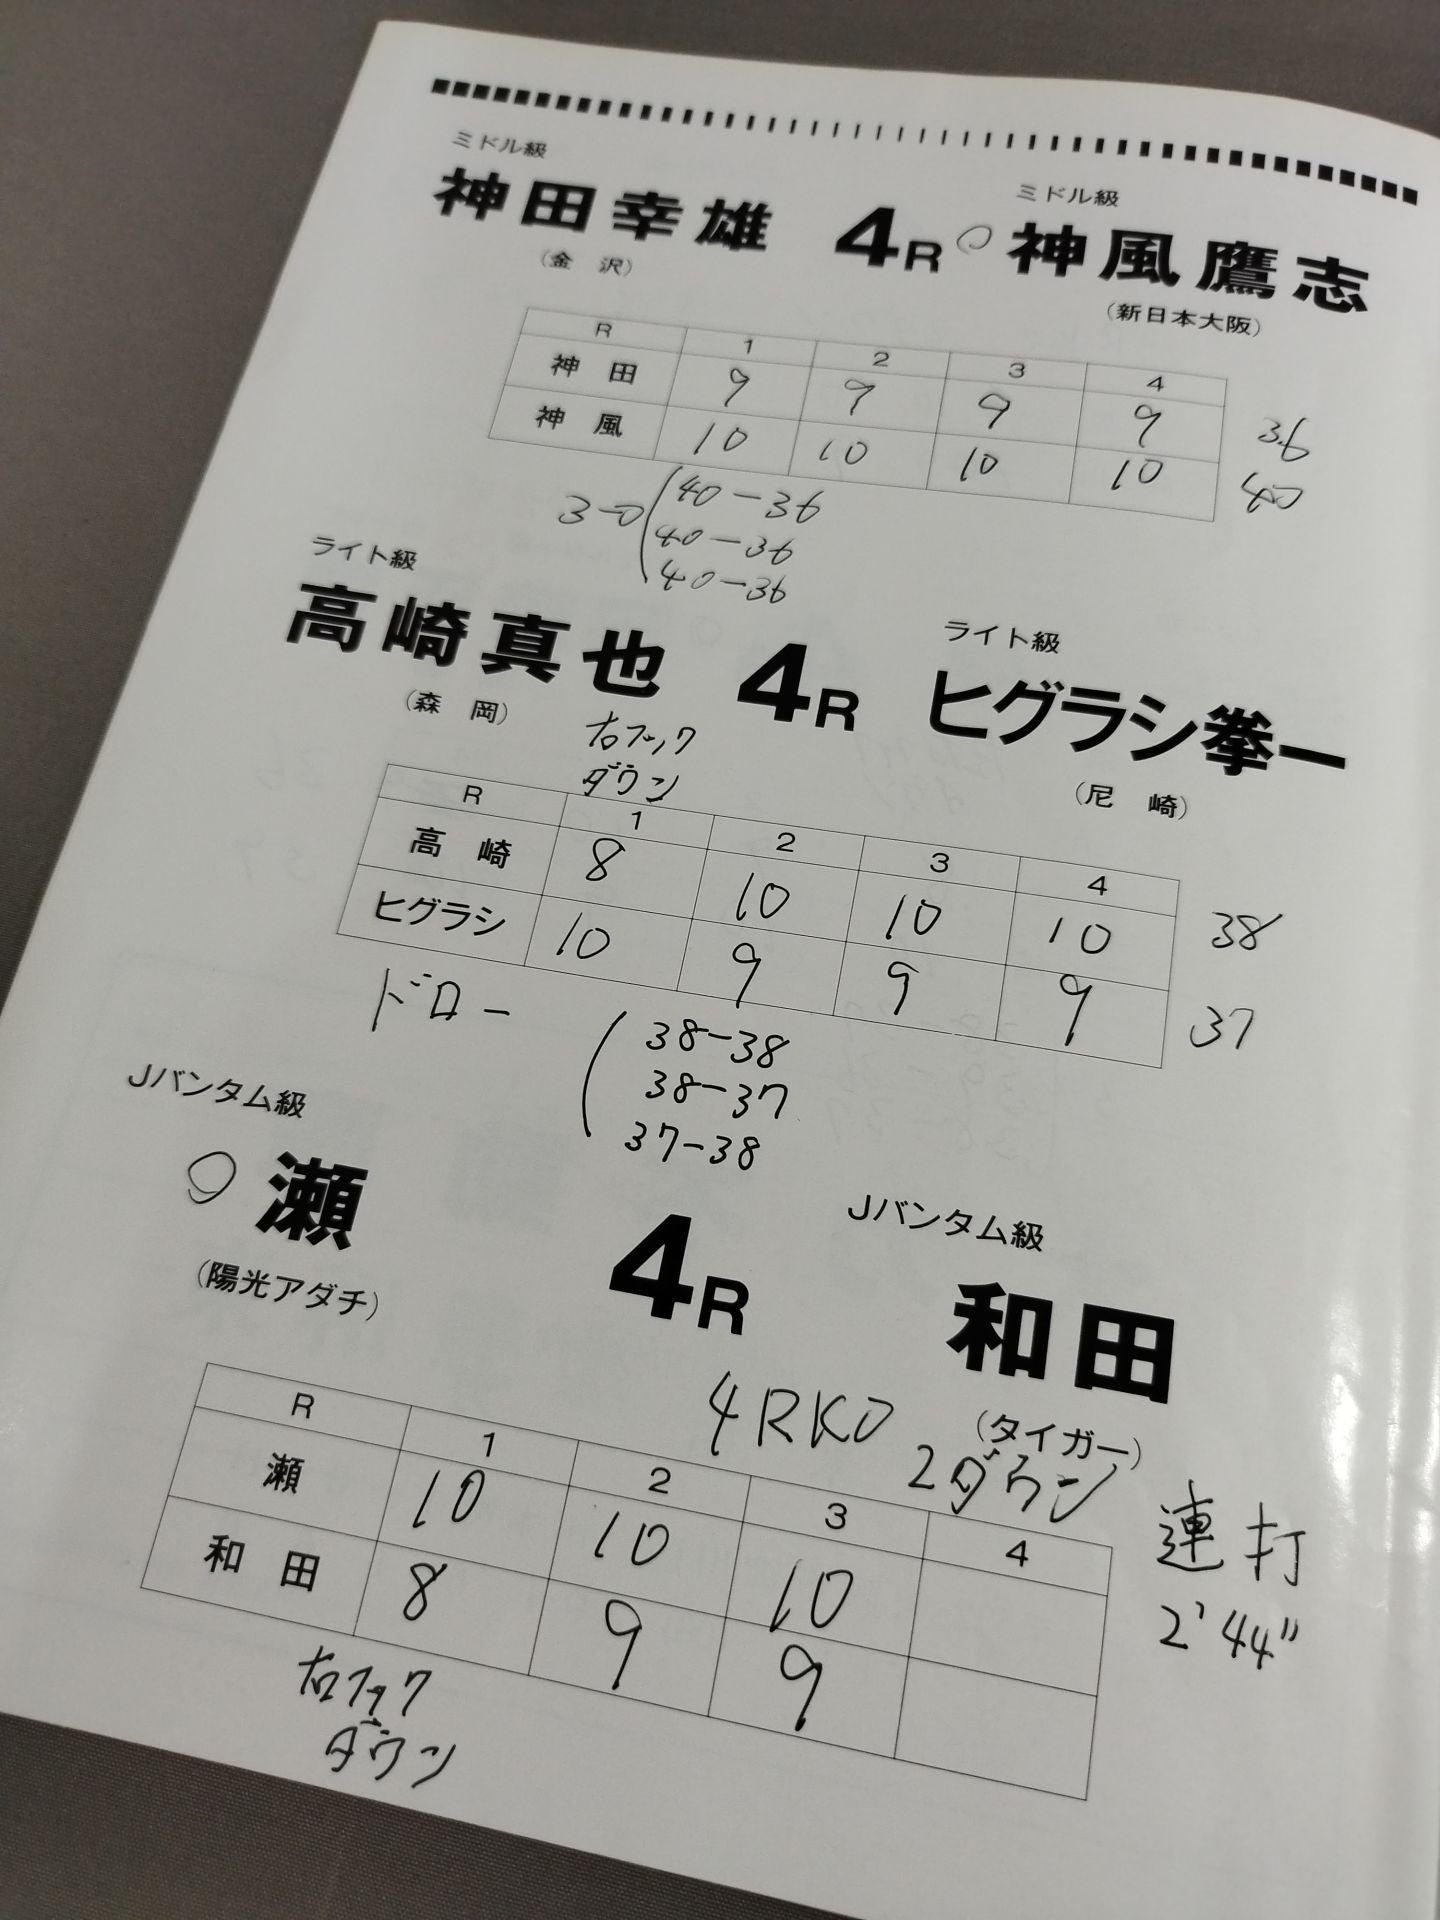 ミドル級
神田幸雄 4R ○ ミドル級
神風鷹志
(金 沢)
(新日本大阪)
R 1 2 3 4
神 田 9 9 9 9 36
神 風 10 10 10 10 40
3-0 ( 40-36
40-36
40-36
ライト級
高崎真也 4R ライト級
ヒグラシ拳一
(森 岡)
(尼 崎)
右フック
ダウン
R 1 2 3 4
高 崎 8 10 10 10 38
ヒグラシ 10 9 9 9 37
ドロー ( 38-38
38-37
37-38
Jバンタム級
○ 瀬 4R Jバンタム級
和田
(陽光アダチ)
(タイガー)
4RKO
2ダウン
連打
2'44"
R 1 2 3 4
瀬 10 10 10
和 田 8 9 9
右フック
ダウン